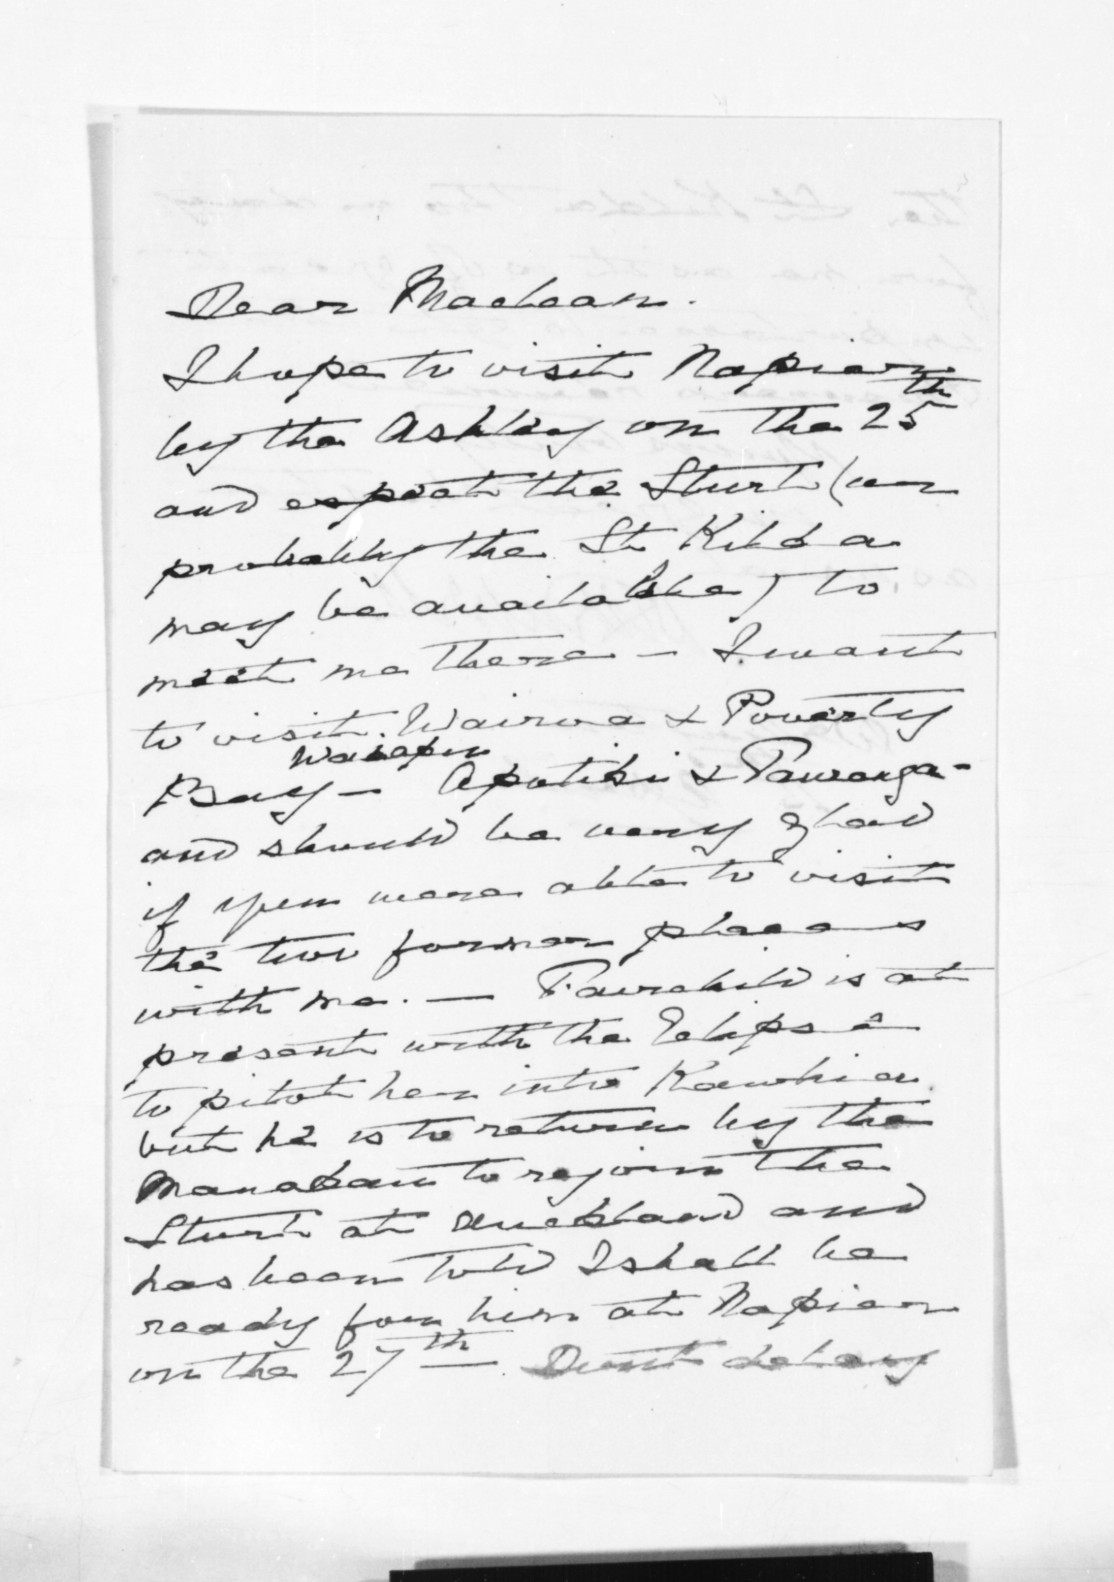 Dear Maclean.
I hope to visit Napier
by the Ashley on the 25th
and expect the Sturt (or
probably the St Kilda
may be available) to
meet me there — I want
to visit Wairoa & Poverty
Waiapu
Bay — Opotiki & Tauranga -
and should be very glad
if you were able to visit
the two former places
with me. — Fairchild is at
present with the Eclipse
to pilot her into Kawhia
but he is to return by the
Manukau to rejoin the
Sturt at Auckland and
has been told I shall be
ready for him at Napier
on the 27th Don't delay